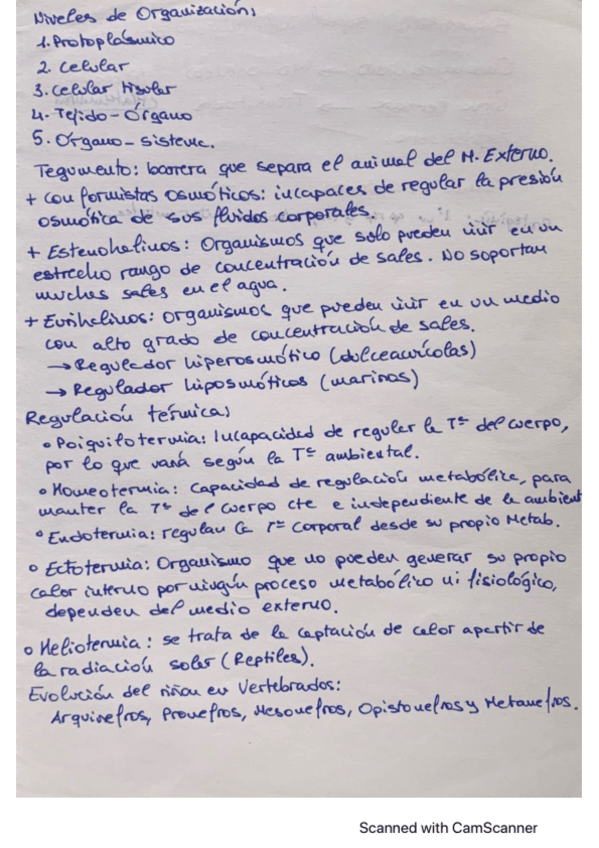 Niveles de Organización:
1. Protoplásmico
2. Celular
3. Celular tisular
4. Tejido-Órgano
5. Órgano-sistema.
Tegumento: barrera que separa el animal del M. Externo.
+ Conformistas Osmóticos: incapaces de regular la presión
osmótica de sus fluidos corporales.
+ Estenohalinos: Organismos que solo pueden vivir en un
estrecho rango de concentración de sales. No soportan
muchas sales en el agua.
+ Eurihalinos: organismos que pueden vivir en un medio
con alto grado de concentración de sales.
→ Regulador hiperosmótico (dulceacuícolas)
→ Regulador hiposmóticos (marinos)
Regulación térmica:
• Poiquilotermia: Incapacidad de regular la Tª del cuerpo,
por lo que varía según la Tª ambiental.
• Homeotermia: Capacidad de regulación metabólica, para
manter la Tª del cuerpo cte e independiente de la ambient
• Endotermia: regulan la Tª corporal desde su propio Metab.
• Ectotermia: Organismo que no pueden generar su propio
calor interno por ningún proceso metabólico ni fisiológico,
dependen del medio externo.
• Heliotermia: se trata de la captación de calor apartir de
la radiación solar (Reptiles).
Evolución del riñon en Vertebrados:
Arquinefros, Pronefros, Mesonefros, Opistonefros y Metanefros.
Scanned with CamScanner